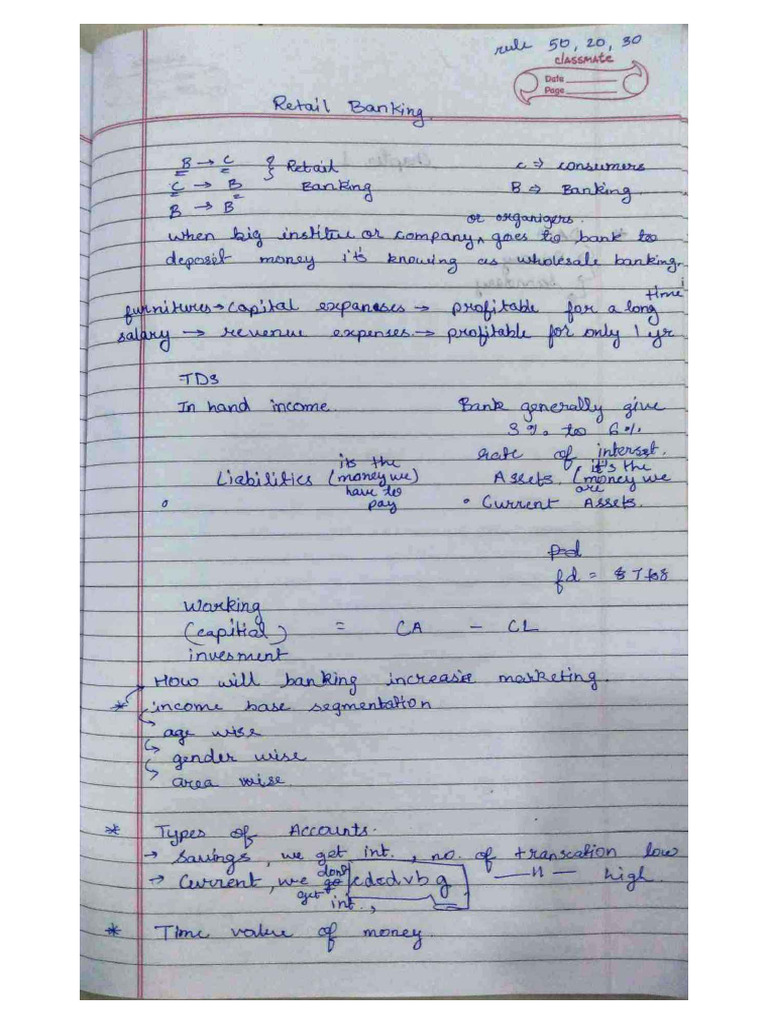 rule 50, 20, 30
classmate
Date
Page
Retail Banking.
B → C } Retail c => consumers
C → B Banking B => Banking
B → B
or organigers.
when big institue or company ^ goes to bank to
deposit money it's knowing as wholesale banking.
time
furnitures → capital expanses → profitable for a long
salary → revenue expenses → profitable for only 1 yr
TDS
In hand income. Bank generally give
3% to 6%
rate of interset.
Liabilities (its the money we have to pay) Assets, (it's the money we are
• • Current Assets.
fd = 8 7 to 8
working
(capitial) = CA - CL
invesment
How will banking increase marketing.
* income base segmentation
age wise
gender wise
area wise
* Types of Accounts.
→ Savings, we get int., no. of transcation low
→ Current, we dont get int., cdcdvbg —"— high
* Time value of money.